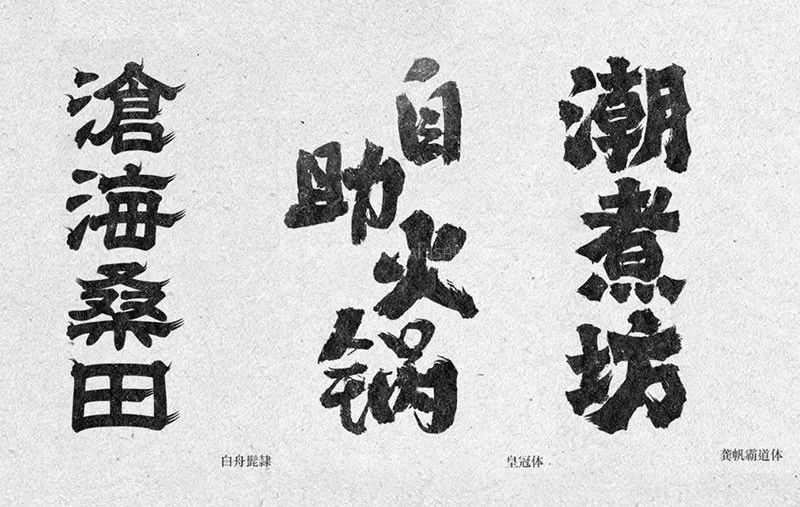 滄海桑田
白舟髭隷
自助火锅
皇冠体
潮煮坊
龚帆霸道体